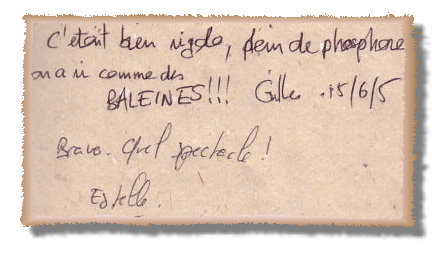 C'était bien rigolo, plein de phosphore
on a ri comme des
BALEINES!!! Gilles .15/6/5
Bravo. Quel spectacle!
Estelle.